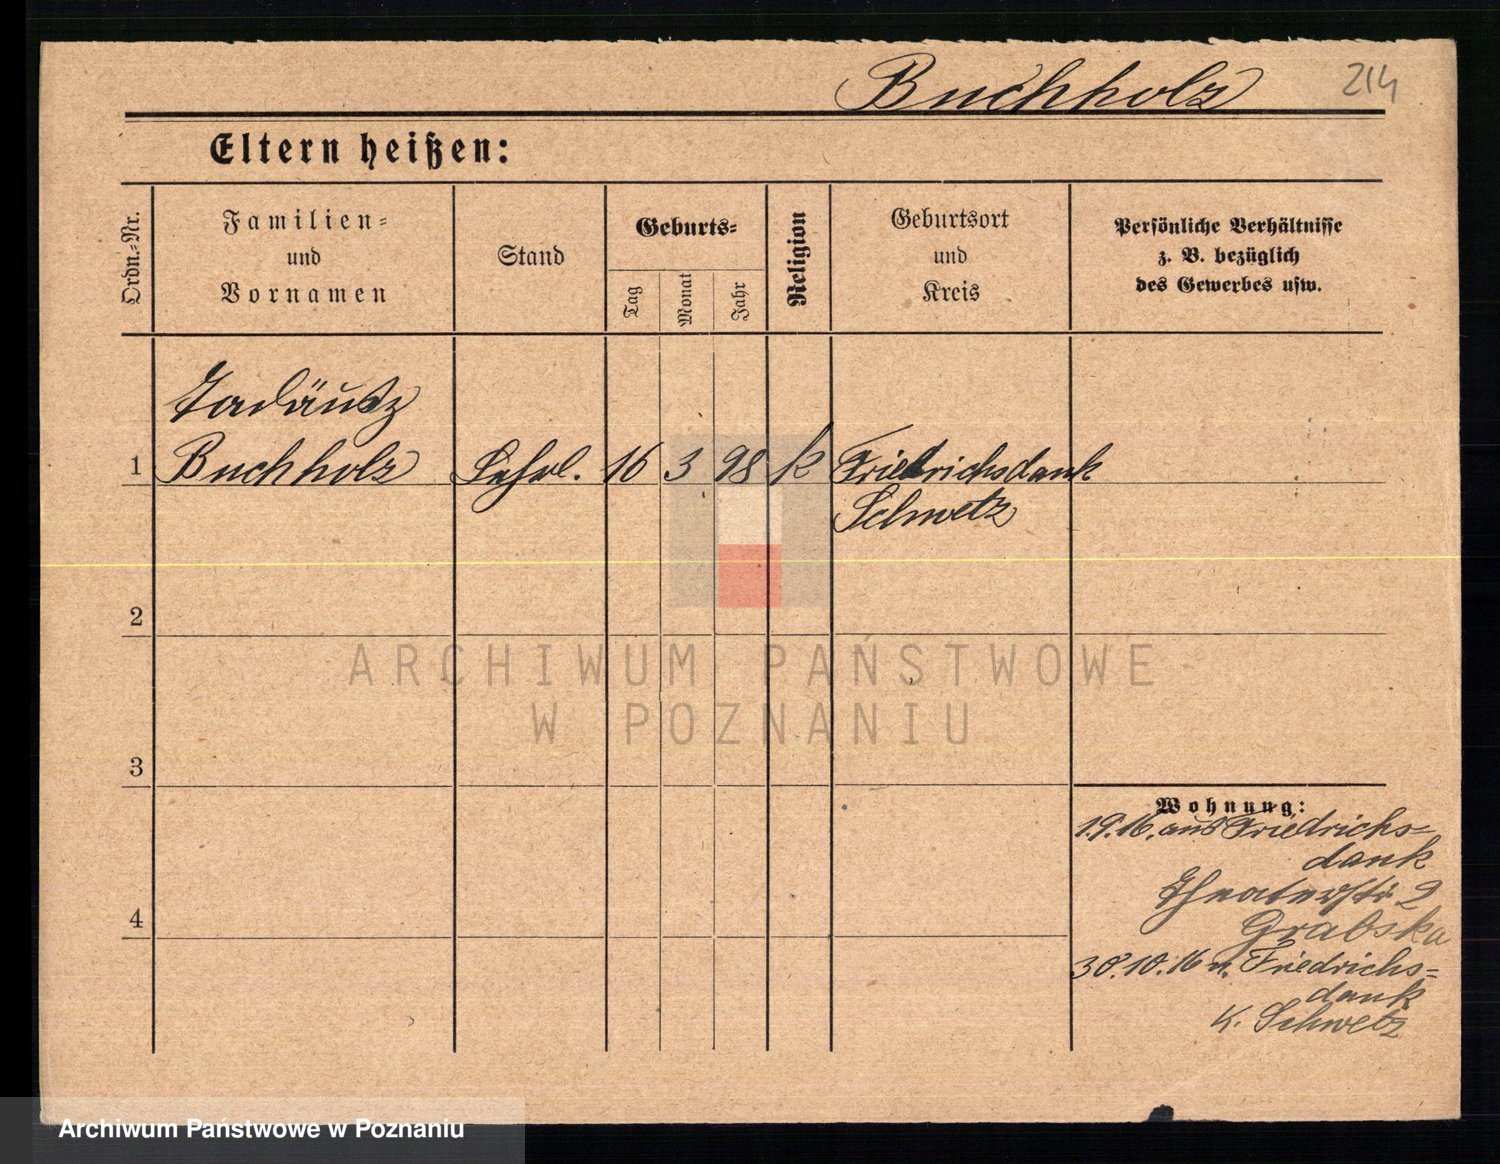 Buchholz 214
Eltern heißen:
Ordn.=Nr.
Familien=
und
Vornamen
Stand
Geburts=
Tag
Monat
Jahr
Religion
Geburtsort
und
Kreis
Persönliche Verhältnisse
z. B. bezüglich
des Gewerbes usw.
Tadäusz
1 Buchholz Lehrl. 16 3 98 k Friedrichsdank
Schwetz
2
3
4
Wohnung:
1.9.16. aus Friedrichs=
dank
Theaterstr 2
Grabska
30.10.16 n. Friedrichs=
dank
K. Schwetz
ARCHIWUM PAŃSTWOWE
W POZNANIU
Archiwum Państwowe w Poznaniu